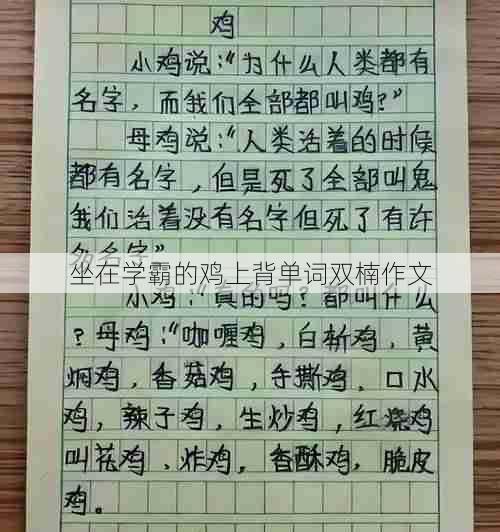 鸡
小鸡说:“为什么人类都有
名字,而我们全部都叫鸡?”
母鸡说:“人类活着的时候
都有名字,但是死了全部叫鬼
我们活着没有名字但死了有许
多名字”
坐在学霸的鸡上背单词双楠作文
小鸡:“真的吗?都叫什么
?母鸡:“咖喱鸡,白斩鸡,黄
焖鸡,香菇鸡,手撕鸡,口水
鸡,辣子鸡,生炒鸡,红烧鸡
叫花鸡、炸鸡,香酥鸡,脆皮
鸡。